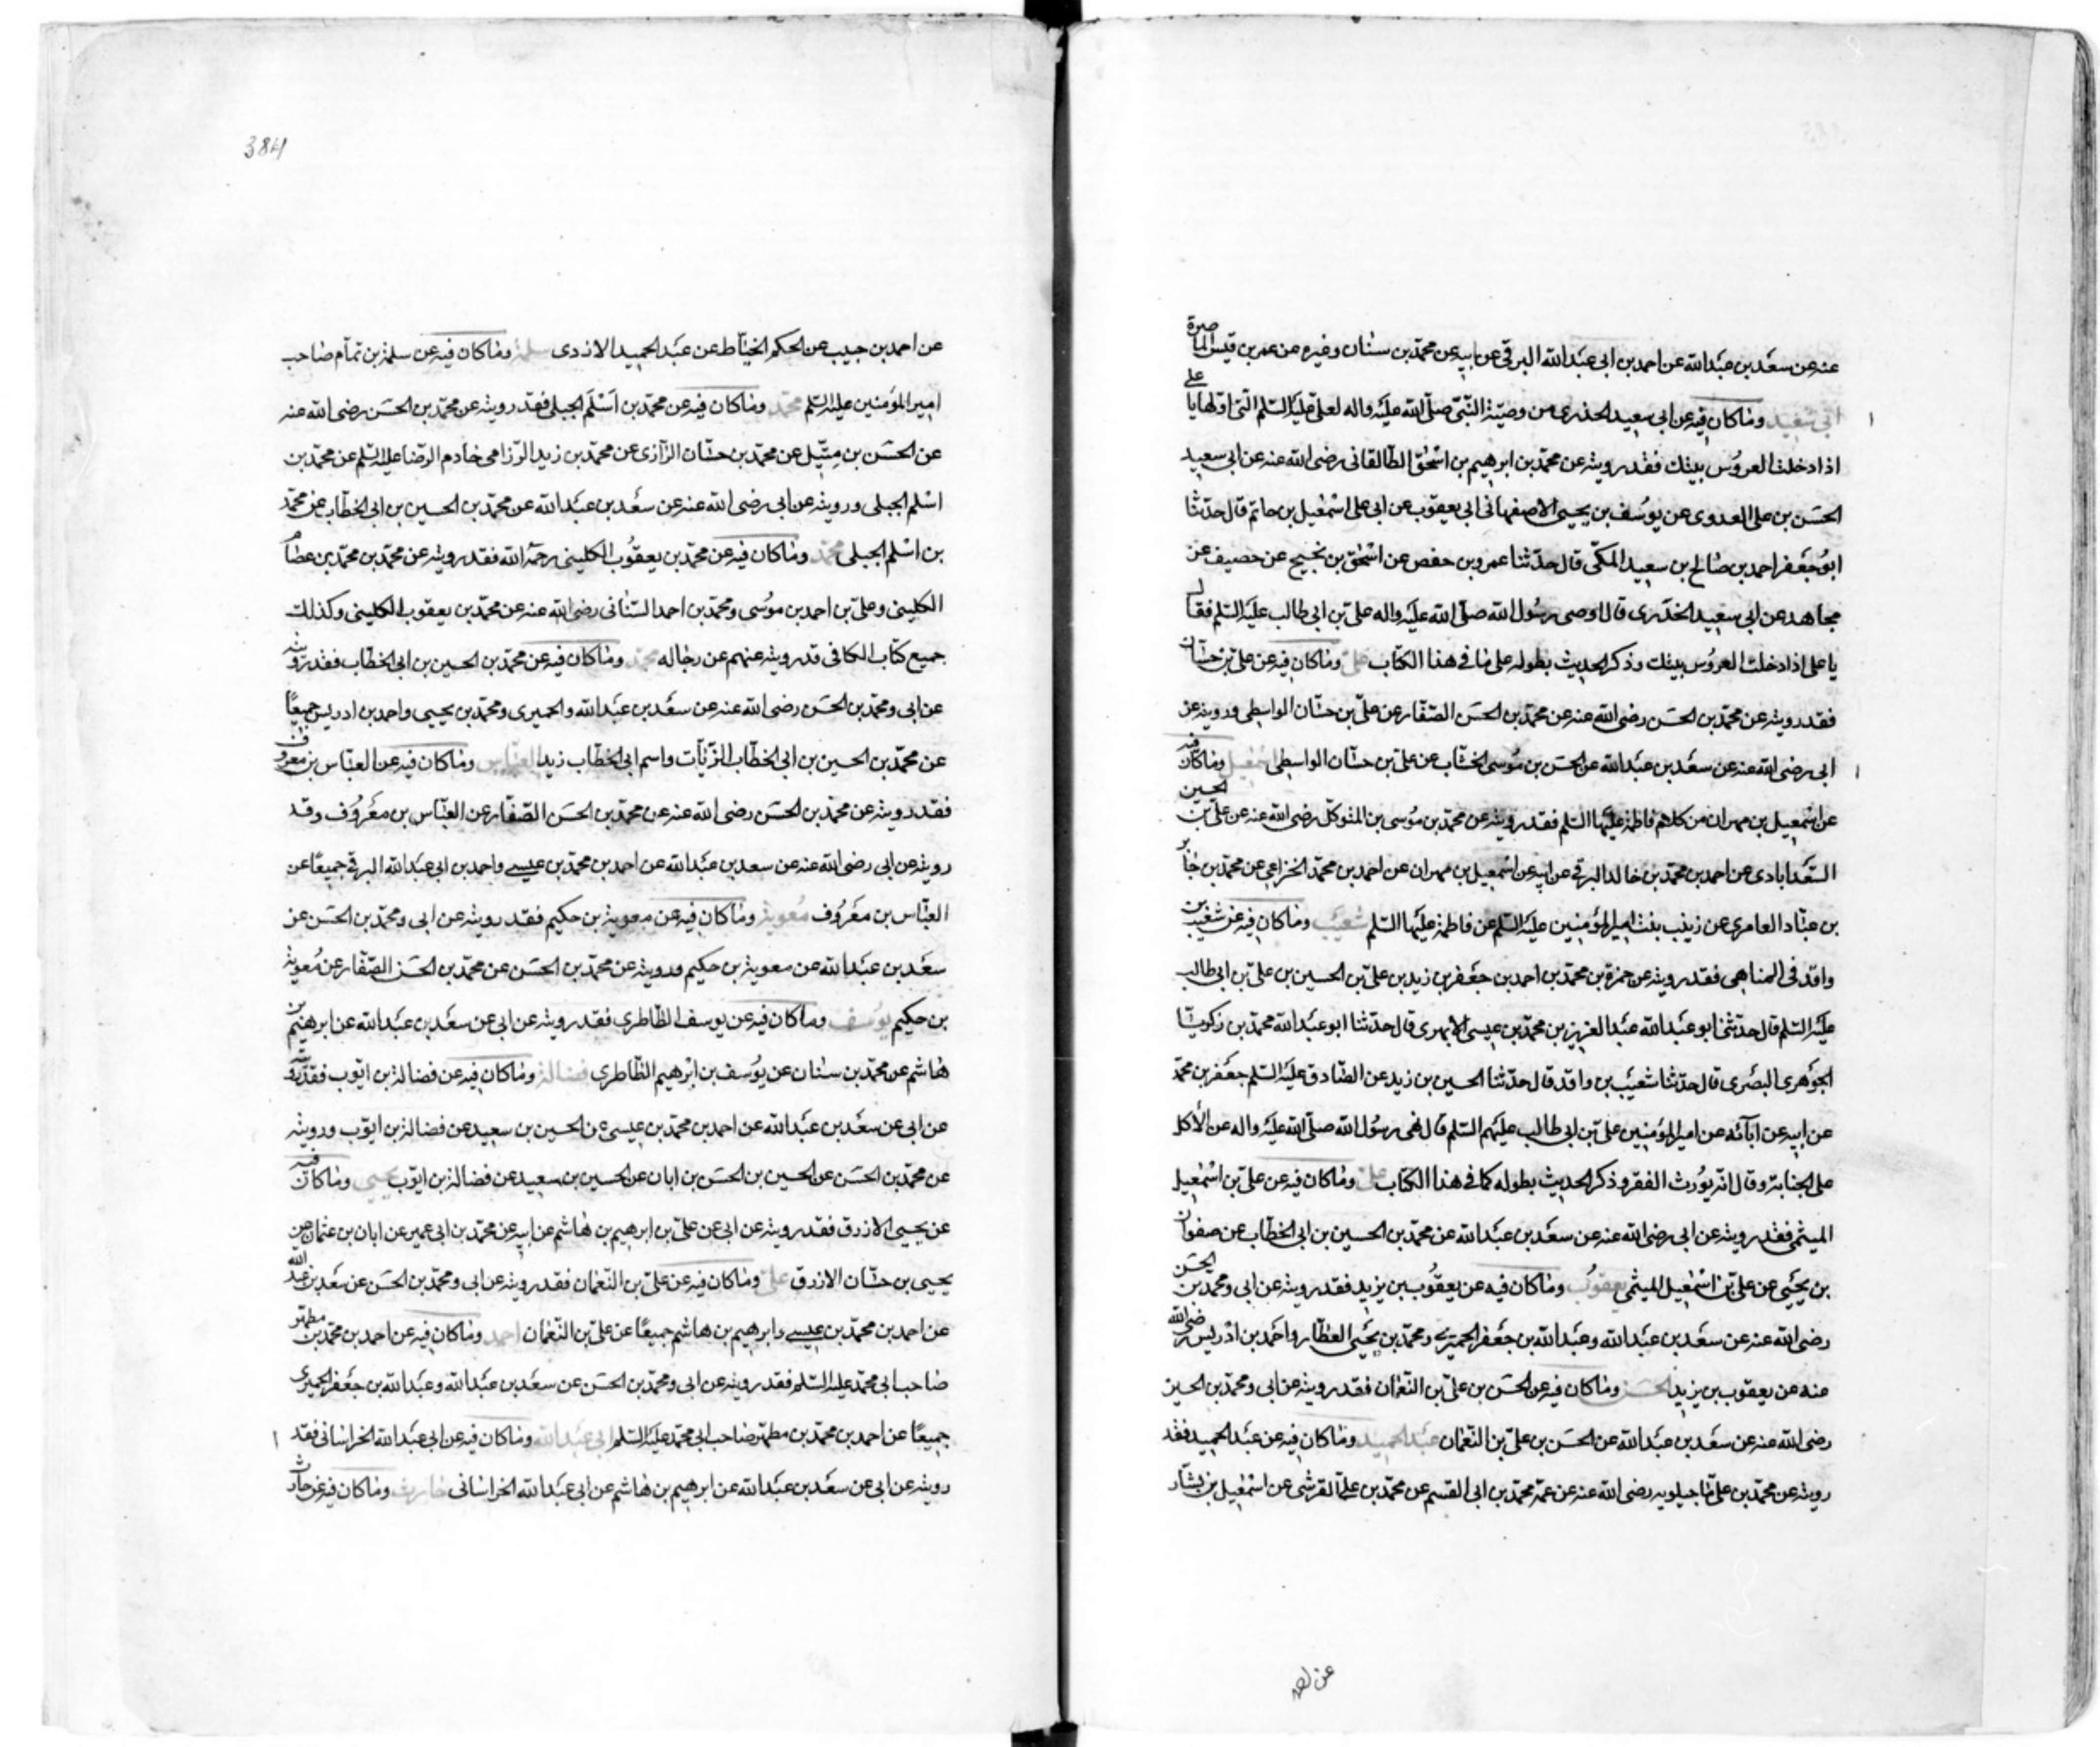 عنه عن سعد بن عبدالله عن احمد بن ابی عبدالله البرقی عن ابیه عن محمد بن سنان وغیره عن عمر بن قیس الماصرة
ابی سعید وماکان فیه عن ابی سعید الخدری من وصیة النبی صلی الله علیه واله لعلی علیه السلم التی اولها یا علی
اذا دخلت العروس بیتک فقد رویته عن محمد بن ابرهیم بن اسحق الطالقانی رضی الله عنه عن ابی سعید
الحسن بن علی العدوی عن یوسف بن یحیی الاصفهانی ابی یعقوب عن ابی علی اسمعیل بن حاتم قال حدثنا
ابو جعفر احمد بن صالح بن سعید المکی قال حدثنا عمرو بن حفص عن اسحق بن نجیح عن حصیف عن
مجاهد عن ابی سعید الخدری قال اوصی رسول الله صلی الله علیه واله علی بن ابی طالب علیه السلم فقال
یا علی اذا دخلت العروس بیتک وذکر الحدیث بطوله علی ما فی هذا الکتاب علی وماکان فیه عن علی بن حسان
فقد رویته عن محمد بن الحسن رضی الله عنه عن محمد بن الحسن الصفار عن علی بن حسان الواسطی ورویته عن
ابی رضی الله عنه عن سعد بن عبدالله عن الحسن بن موسی الخشاب عن علی بن حسان الواسطی اسمعیل وماکان فیه
عن اسمعیل بن مهران من کلام فاطمة علیها السلم فقد رویته عن محمد بن موسی بن المتوکل رضی الله عنه عن علی بن الحسین
السعدابادی عن احمد بن محمد بن خالد البرقی عن ابیه عن اسمعیل بن مهران عن احمد بن محمد الخزاعی عن محمد بن جابر
بن عباد العامری عن زینب بنت امیر المؤمنین علیه السلم عن فاطمة علیها السلم شعیب وماکان فیه عن شعیب بن
واقد فی المناهی فقد رویته عن حمزة بن محمد بن احمد بن جعفر بن زید بن علی بن الحسین بن علی بن ابی طالب
علیه السلم قال حدثنی ابو عبدالله عبدالعزیز بن محمد بن عیسی الابهری قال حدثنا ابو عبدالله محمد بن زکریا
الجوهری البصری قال حدثنا شعیب بن واقد قال حدثنا الحسین بن زید عن الصادق علیه السلم جعفر بن محمد
عن ابیه عن آبائه عن امیر المؤمنین علی بن ابی طالب علیهم السلم قال نهی رسول الله صلی الله علیه واله عن الأکل
علی الجنابة وقال انه یورث الفقر وذکر الحدیث بطوله کما فی هذا الکتاب علی وماکان فیه عن علی بن اسمعیل
المیثمی فقد رویته عن ابی رضی الله عنه عن سعد بن عبدالله عن محمد بن الحسین بن ابی الخطاب عن صفوان
بن یحیی عن علی بن اسمعیل المیثمی یعقوب وماکان فیه عن یعقوب بن یزید فقد رویته عن ابی ومحمد بن الحسن
رضی الله عنه عن سعد بن عبدالله وعبدالله بن جعفر الحمیری ومحمد بن یحیی العطار واحمد بن ادریس رضی الله
عنه عن یعقوب بن یزید الحسن وماکان فیه عن الحسن بن علی بن النعمان فقد رویته عن ابی ومحمد بن الحسن
رضی الله عنه عن سعد بن عبدالله عن الحسن بن علی بن النعمان عبدالحمید وماکان فیه عن عبدالحمید فقد
رویته عن محمد بن علی ماجیلویه رضی الله عنه عن عمه محمد بن ابی القسم عن محمد بن علی القرشی عن اسمعیل بن بشار
384
عن احمد بن حبیب عن الحکم الخیاط عن عبدالحمید الازدی سلمة وماکان فیه عن سلمة بن تمام صاحب
امیر المؤمنین علیه السلم محمد وماکان فیه عن محمد بن اسلم الجبلی فقد رویته عن محمد بن الحسن رضی الله عنه
عن الحسن بن متیل عن محمد بن حسان الرازی عن محمد بن زید الرزامی خادم الرضا علیه السلم عن محمد بن
اسلم الجبلی ورویته عن ابی رضی الله عنه عن سعد بن عبدالله عن محمد بن الحسین بن ابی الخطاب عن محمد
بن اسلم الجبلی محمد وماکان فیه عن محمد بن یعقوب الکلینی رحمه الله فقد رویته عن محمد بن محمد بن عصام
الکلینی وعلی بن احمد بن موسی ومحمد بن احمد السنانی رضی الله عنه عن محمد بن یعقوب الکلینی وکذلک
جمیع کتاب الکافی قد رویته عنهم عن رجاله محمد وماکان فیه عن محمد بن الحسین بن ابی الخطاب فقد رویته
عن ابی ومحمد بن الحسن رضی الله عنه عن سعد بن عبدالله والحمیری ومحمد بن یحیی واحمد بن ادریس جمیعًا
عن محمد بن الحسین بن ابی الخطاب الزیات واسم ابی الخطاب زید العباس وماکان فیه عن العباس بن معروف
فقد رویته عن محمد بن الحسن رضی الله عنه عن محمد بن الحسن الصفار عن العباس بن معروف وقد
رویته عن ابی رضی الله عنه عن سعد بن عبدالله عن احمد بن محمد بن عیسی واحمد بن ابی عبدالله البرقی جمیعًا عن
العباس بن معروف معویة وماکان فیه عن معویة بن حکیم فقد رویته عن ابی ومحمد بن الحسن عن
سعد بن عبدالله عن معویة بن حکیم ورویته عن محمد بن الحسن عن محمد بن الحسن الصفار عن معویة
بن حکیم یوسف وماکان فیه عن یوسف الطاطری فقد رویته عن ابی عن سعد بن عبدالله عن ابرهیم بن
هاشم عن محمد بن سنان عن یوسف بن ابرهیم الطاطری فضالة وماکان فیه عن فضالة بن ایوب فقد رویته
عن ابی عن سعد بن عبدالله عن احمد بن محمد بن عیسی عن الحسین بن سعید عن فضالة بن ایوب ورویته
عن محمد بن الحسن عن الحسین بن الحسن بن ابان عن الحسین بن سعید عن فضالة بن ایوب یحیی وماکان فیه
عن یحیی الازرق فقد رویته عن ابی عن علی بن ابرهیم بن هاشم عن ابیه عن محمد بن ابی عمیر عن ابان بن عثمان عن
یحیی بن حسان الازرق علی وماکان فیه عن علی بن النعمان فقد رویته عن ابی ومحمد بن الحسن عن سعد بن عبد الله
عن احمد بن محمد بن عیسی وابرهیم بن هاشم جمیعًا عن علی بن النعمان احمد وماکان فیه عن احمد بن محمد بن مطهر
صاحب ابی محمد علیه السلم فقد رویته عن ابی ومحمد بن الحسن عن سعد بن عبدالله وعبدالله بن جعفر الحمیری
جمیعًا عن احمد بن محمد بن مطهر صاحب ابی محمد علیه السلم ابی عبدالله وماکان فیه عن ابی عبدالله الخراسانی فقد
رویته عن ابی عن سعد بن عبدالله عن ابرهیم بن هاشم عن ابی عبدالله الخراسانی حارث وماکان فیه عن حارث